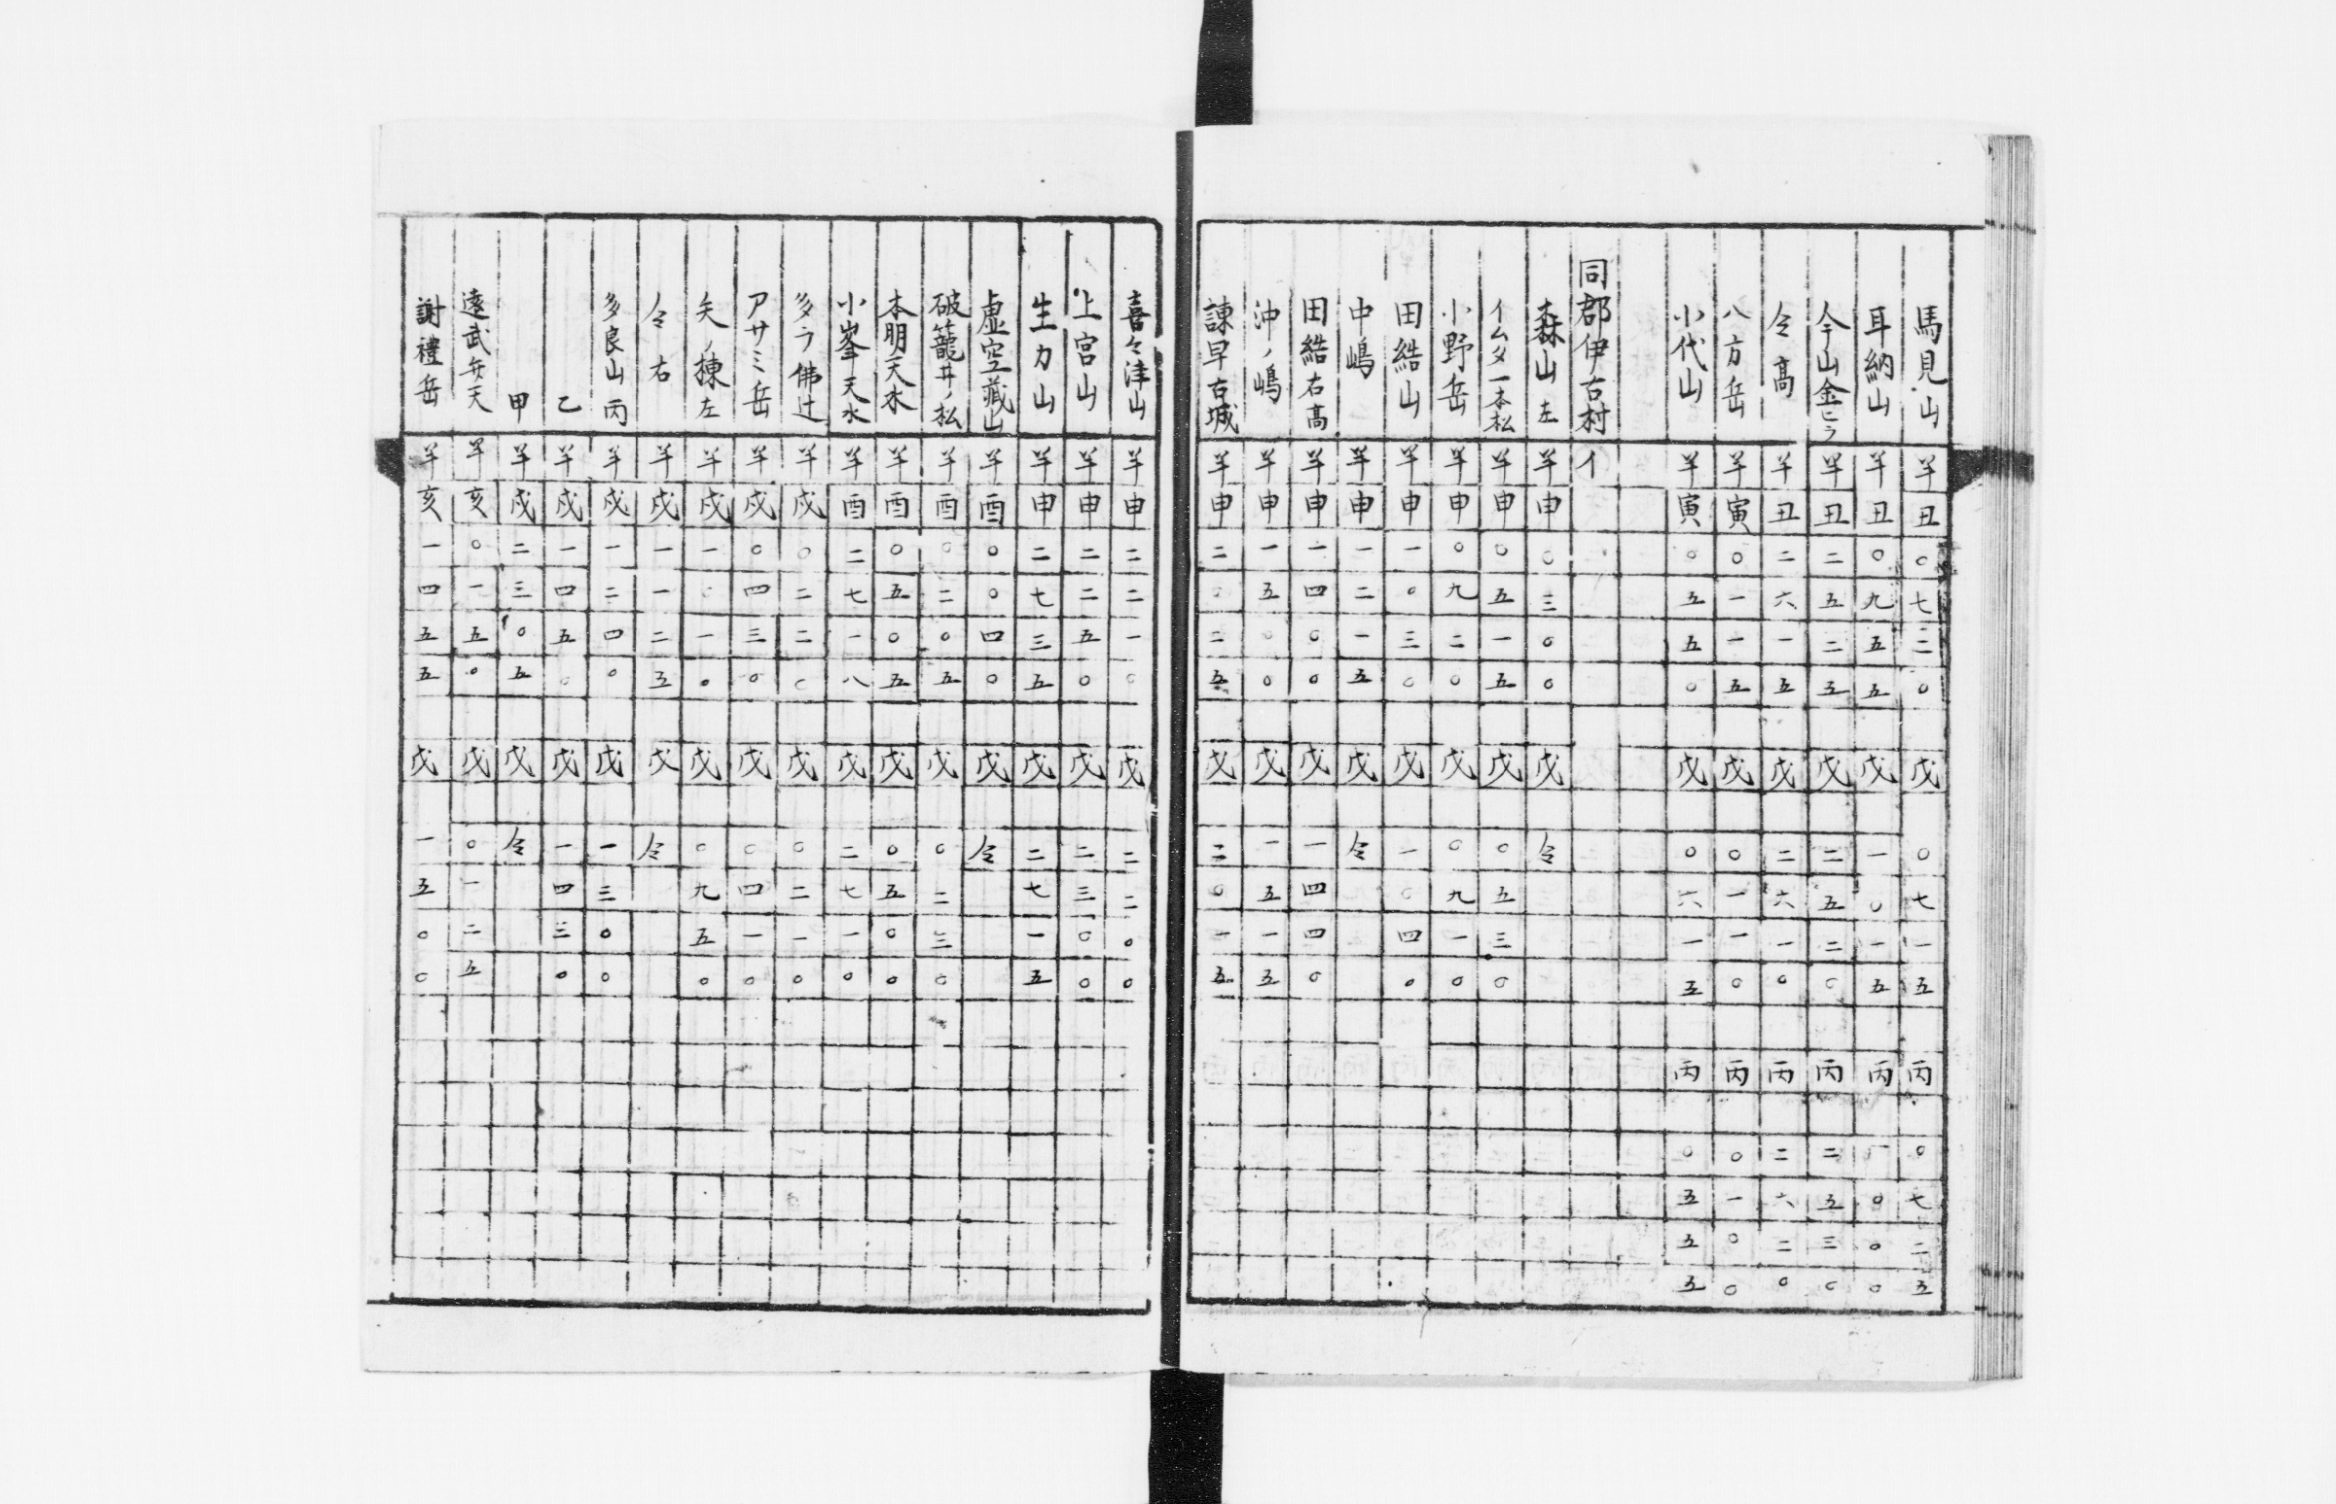 馬見山 半丑〇七二〇 戊〇七一五 丙〇七二五
耳納山 半丑〇九五五 戊一〇一五 丙一〇〇〇
今山金ヒラ 半丑二五二五 戊二五二〇 丙二五三〇
仝高 半丑二六一五 戊二六一〇 丙二六二〇
八方岳 半寅〇一一五 戊〇一一〇 丙〇一〇〇
小代山 半寅〇五五〇 戊〇六一五 丙〇五五五
同郡伊古村 イ
森山左 半申〇三〇〇 戊仝
イムタ一本松 半申〇五一五 戊〇五三〇
小野岳 半申〇九二〇 戊〇九一〇
田結山 半申一〇三〇 戊一〇四〇
中嶋 半申一二一五 戊仝
田結右高 半申一四〇〇 戊一四四〇
沖ノ嶋 半申一五〇〇 戊一五一五
諫早古城 半申二〇二五 戊二〇一五
喜々津山 半申二二一〇 戊二二〇〇
上宮山 半申二二五〇 戊二三〇〇
生力山 半申二七三五 戊二七一五
虚空蔵山 半酉〇〇四〇 戊仝
破籠井ノ松 半酉〇二〇五 戊〇二三〇
本明天水 半酉〇五〇五 戊〇五〇〇
小峯天水 半酉二七一八 戊二七一〇
多ラ佛辻 半戌〇二二〇 戊〇二一〇
アサミ岳 半戌〇四三〇 戊〇四一〇
矢ノ揀左 半戌一〇一〇 戊〇九五〇
仝右 半戌一一二五 戊仝
多良山丙 半戌一二四〇 戊一三〇〇
乙 半戌一四五〇 戊一四三〇
甲 半戌二三〇五 戊仝
遠武弁天 半亥〇一五〇 戊〇一二五
謝禮岳 半亥一四五五 戊一五〇〇